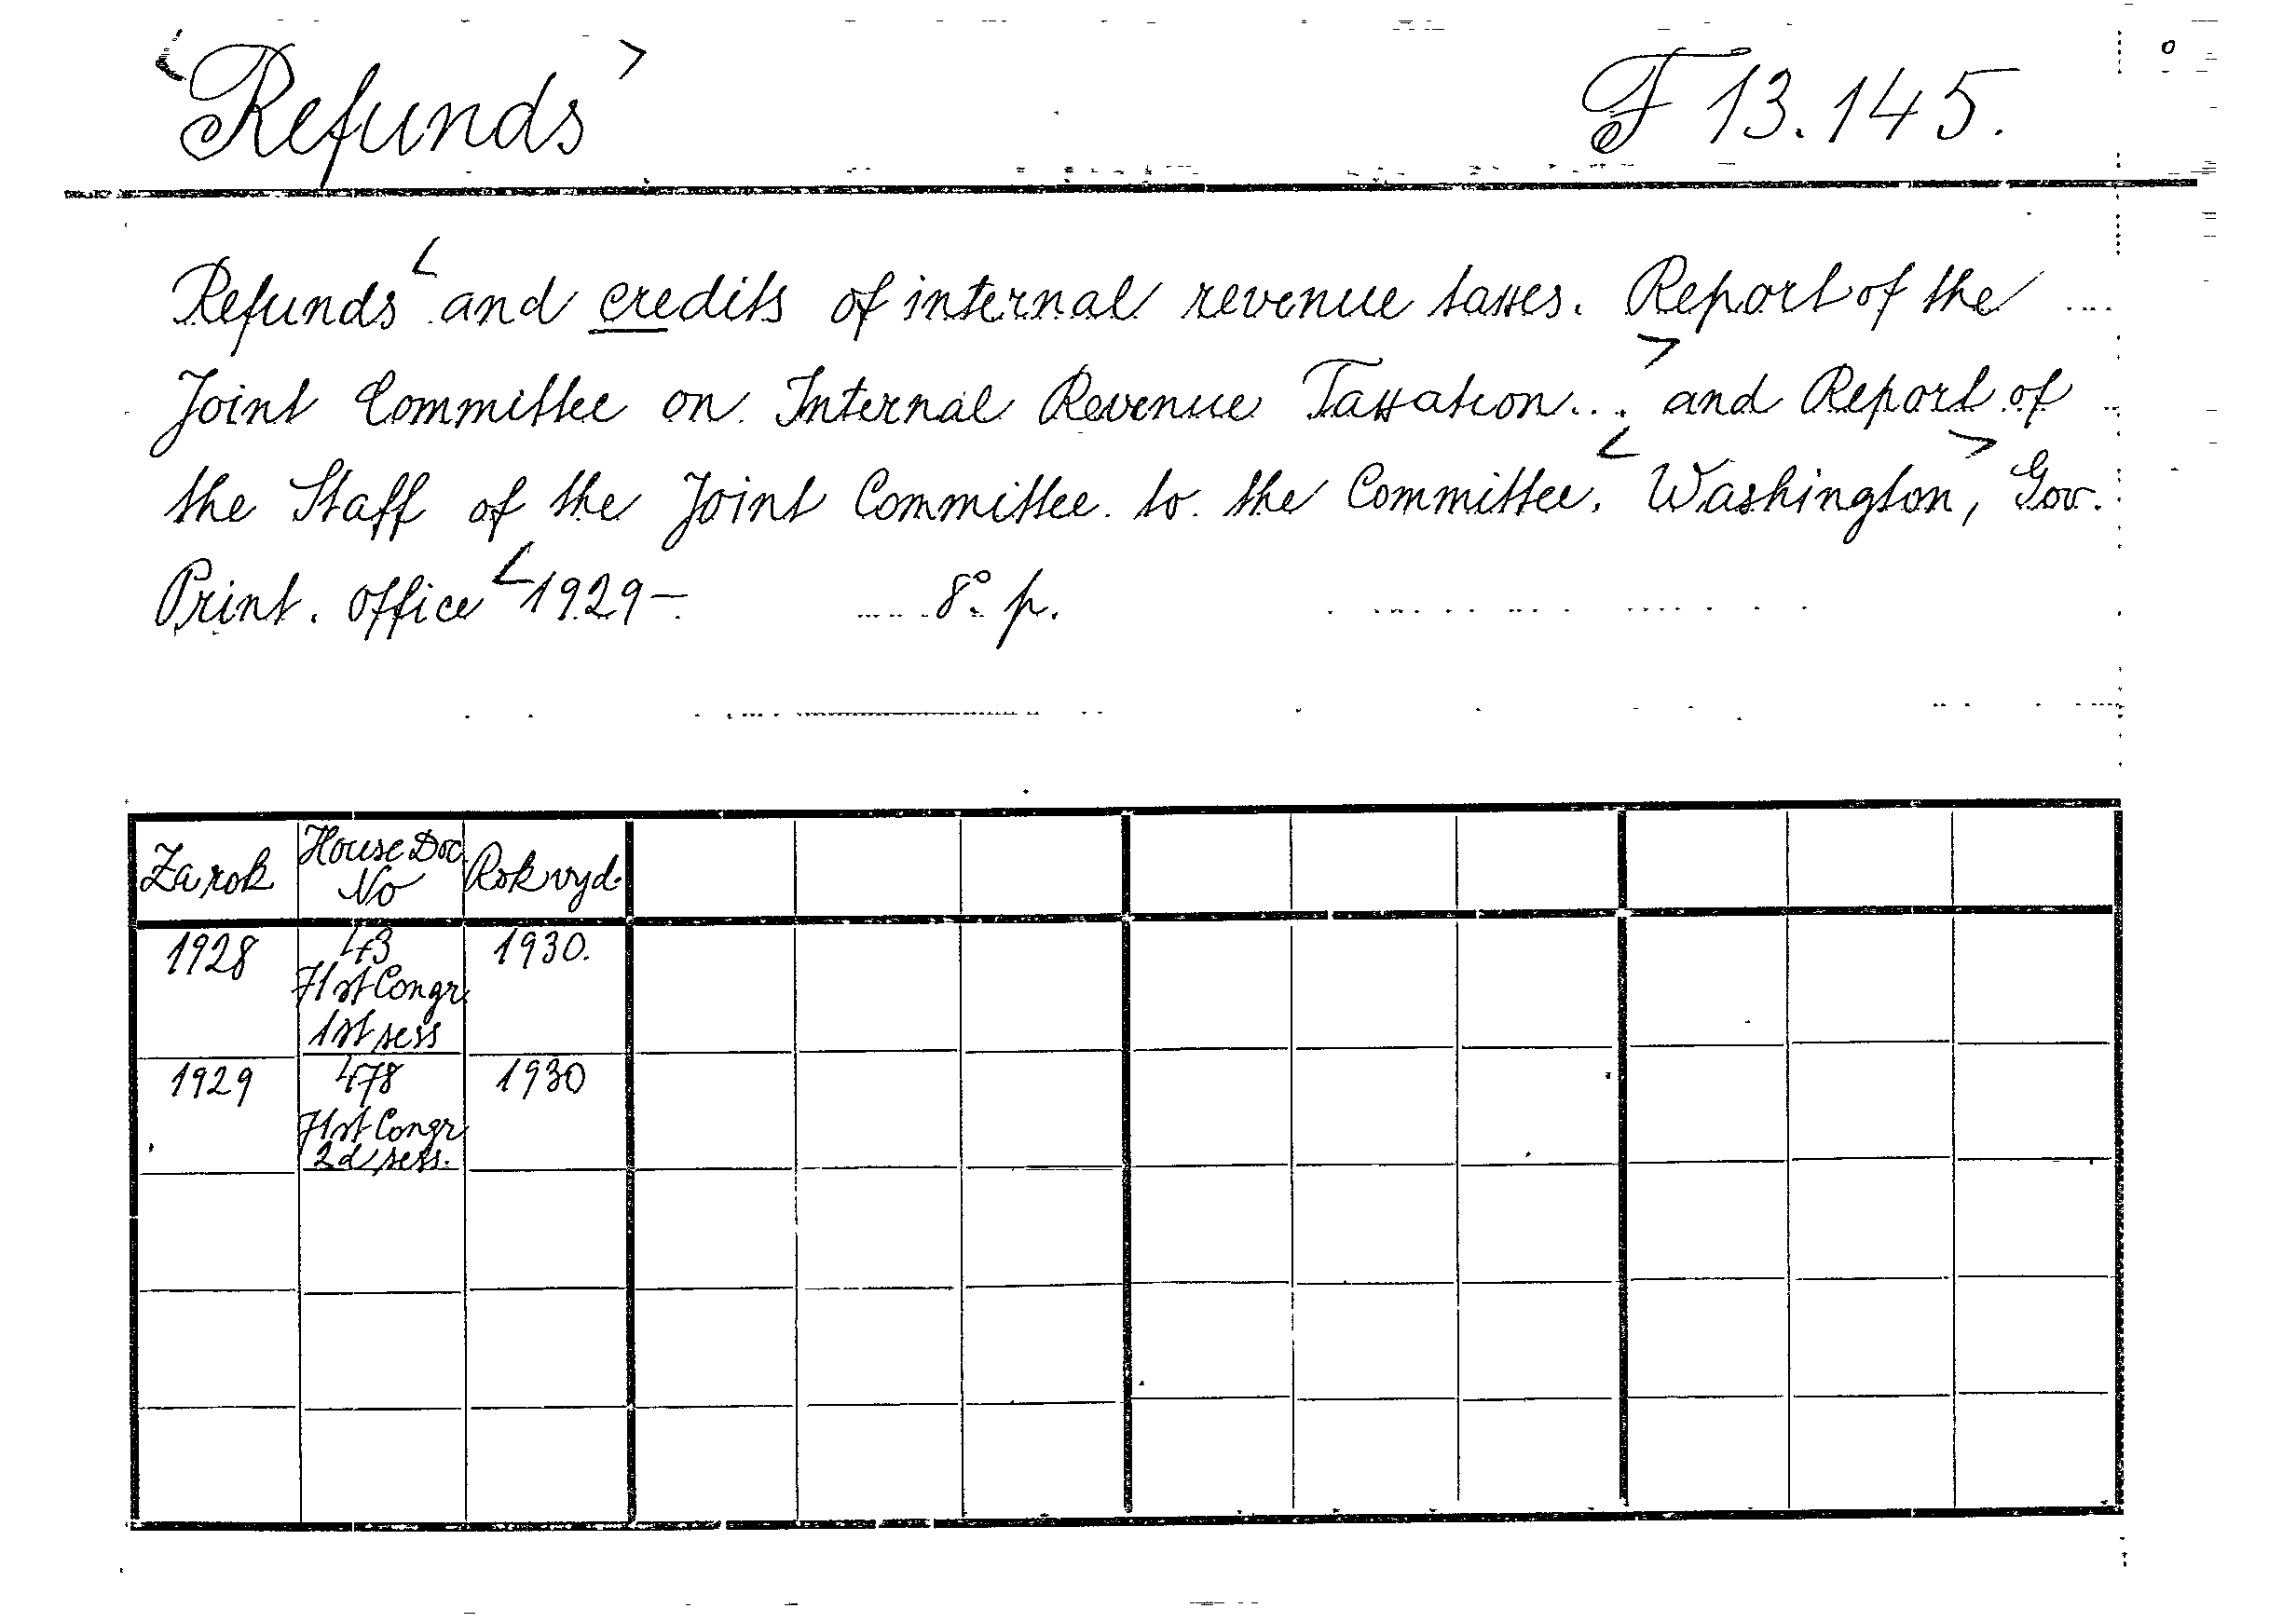 Refunds F 13.145.
Refunds and credits of internal revenue taxes. Report of the
Joint Committee on Internal Revenue Taxation... and Report of
the Staff of the Joint Committee to the Committee. Washington, Gov.
Print. Office 1929-. 8° p.
Za rok House Doc. No Rok vyd.
1928 43 1930.
71st Congr
1st sess
1929 478 1930
71st Congr
2d sess.